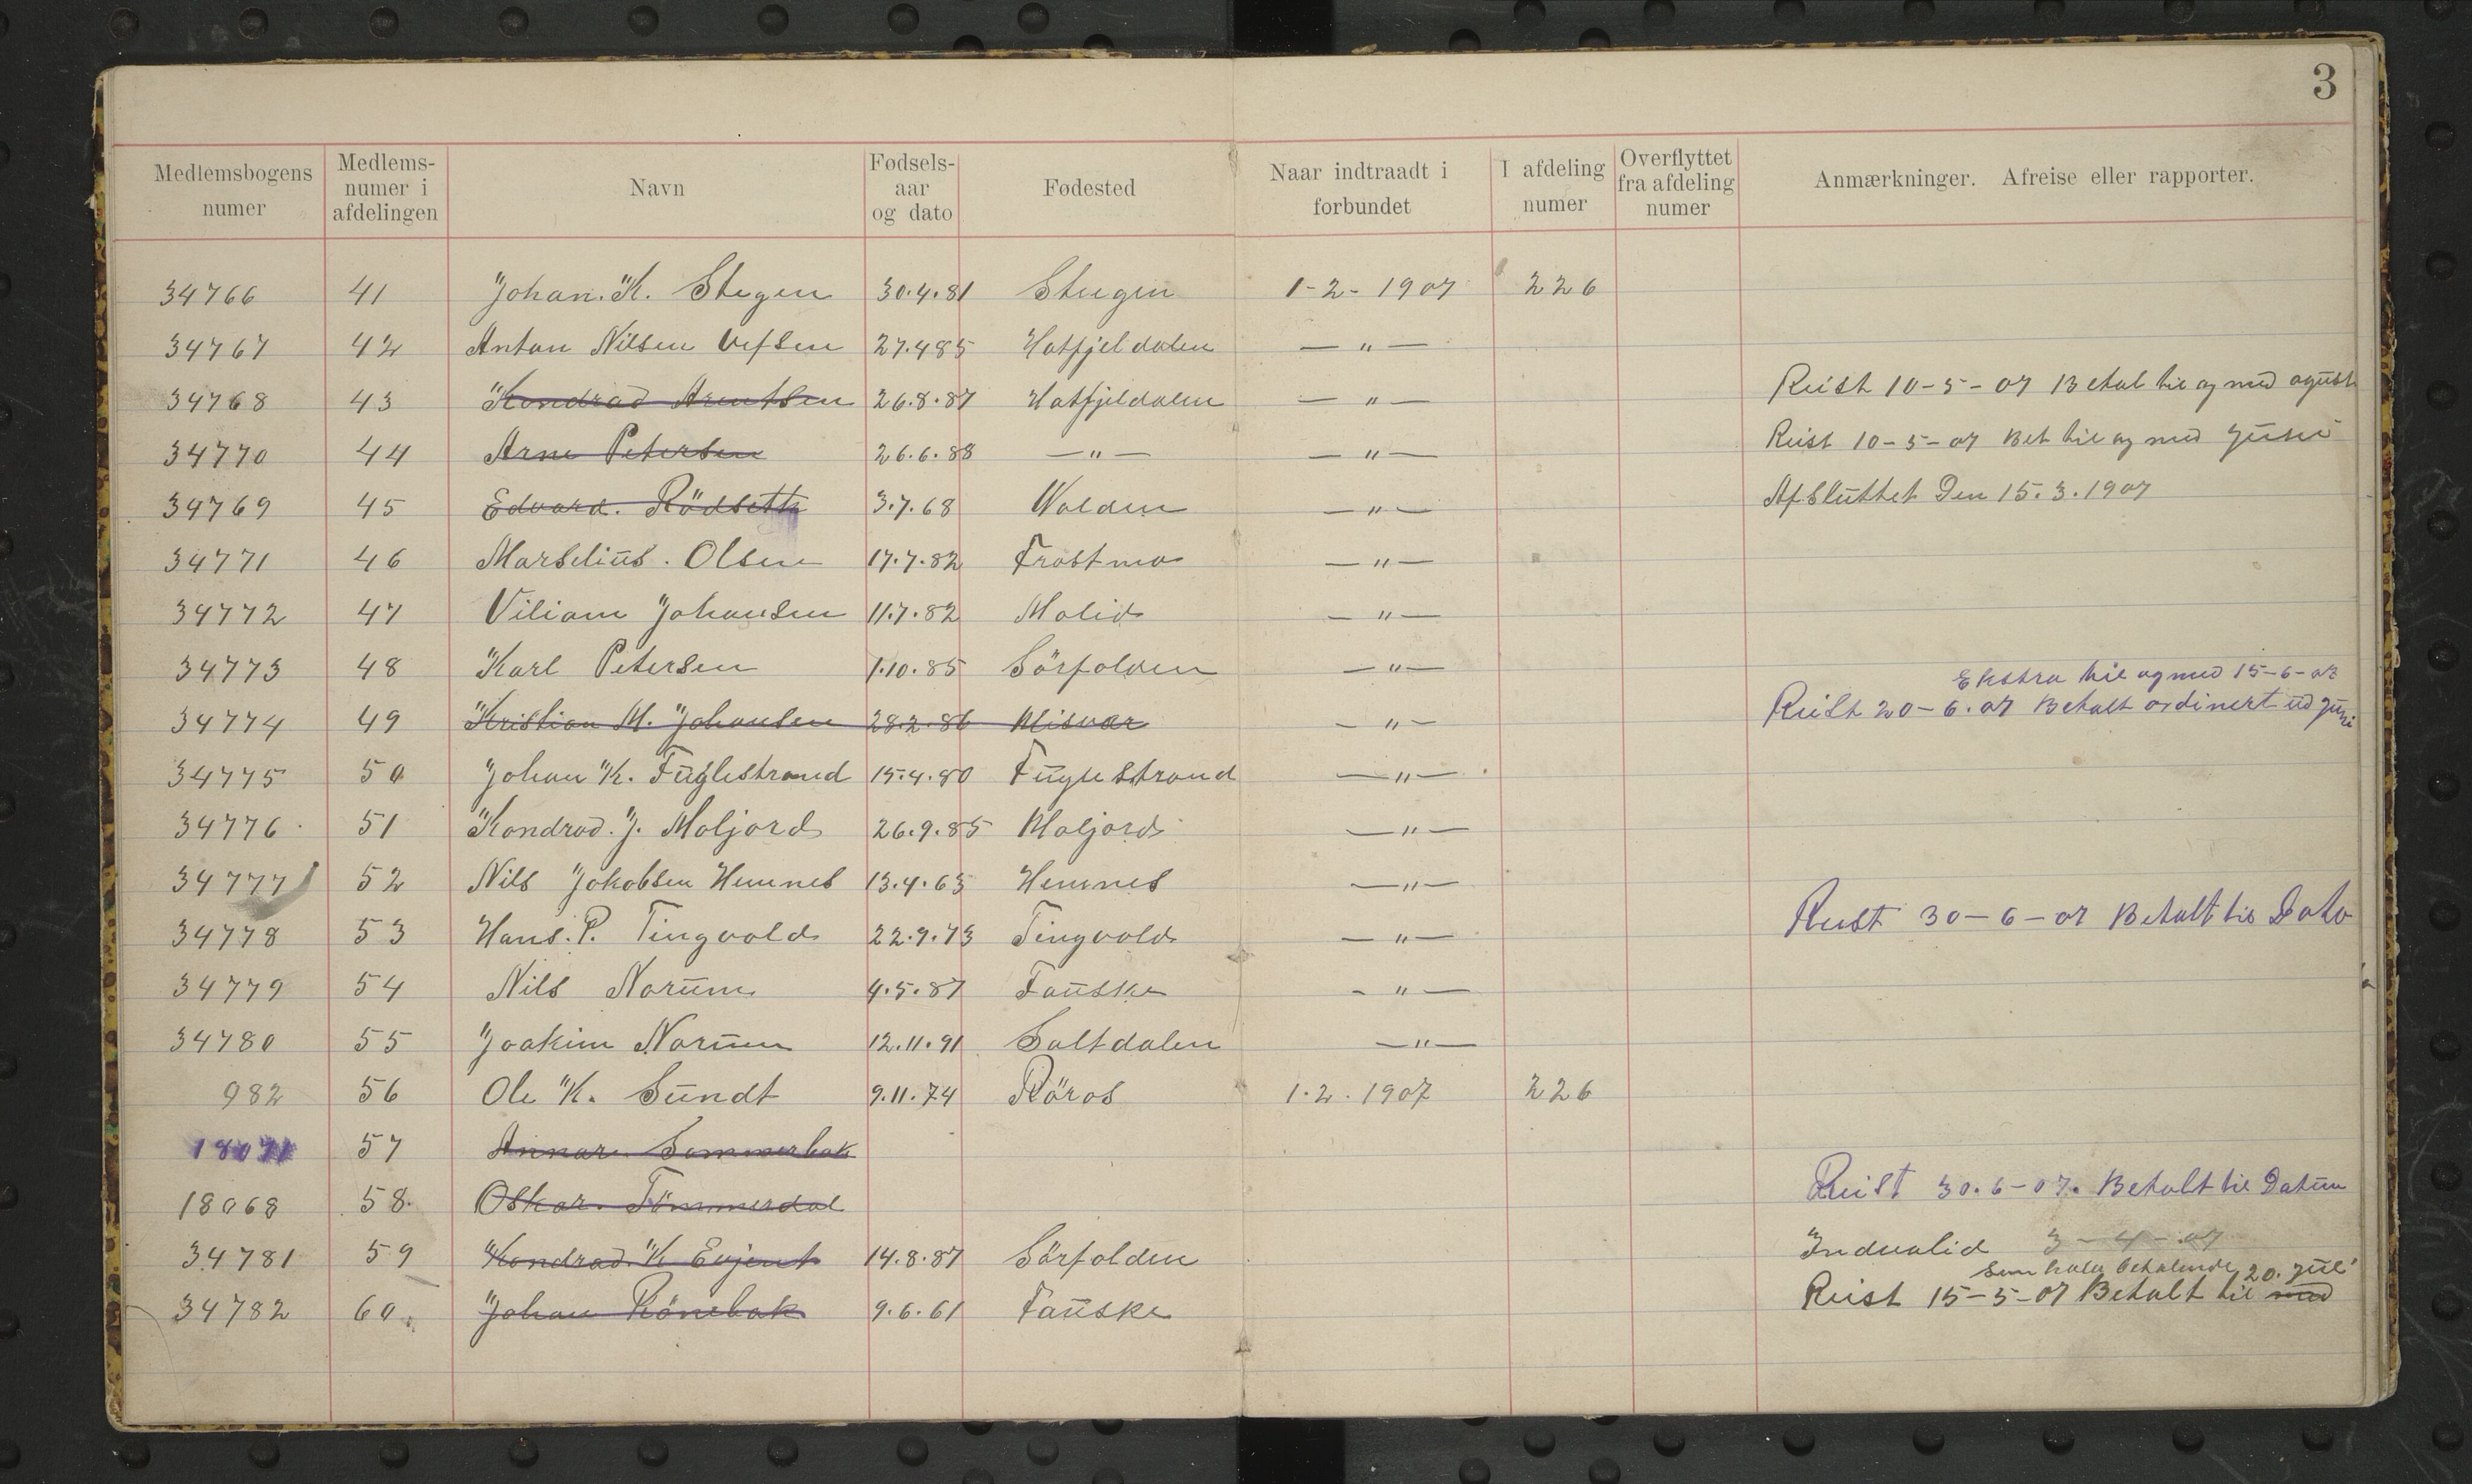 3
Medlemsbogens numer | Medlems-numer i afdelingen | Navn | Fødsels-aar og dato | Fødested | Naar indtraadt i forbundet | I afdeling numer | Overflyttet fra afdeling numer | Anmærkninger. Afreise eller rapporter.
34766 41 Johan. K. Stegen 30.4.81 Steigen 1-2-1907 226
34767 42 Anton Nilsen Vefsen 27.4 85 Hatfjeldalen — " —
34768 43 Kondrad Arentsen 26.8.87 Hatfjeldalen — " — Reist 10-5-07 Betal til og med agust
34770 44 Arne Petersen 26.6.88 — " — — " — Reist 10-5-07 Bet til og med Juni
34769 45 Edvard. Rödseth 3.7.68 Volden — " — Afsluttet Den 15.3.1907
34771 46 Marselius. Olsen 17.7.82 Frostmo — " —
34772 47 Viliam Johansen 11.7.82 Molid — " —
34773 48 Karl Petersen 1.10.85 Sörfolden — " —
Ekstra til og med 15-6-07
34774 49 Kristian M. Johansen 28.2.86 Misvær — " — Reist 20-6.07 Betalt ordinert ud juni
34775 50 Johan K. Fuglestrand 15.4.80 Fuglestrand — " —
34776 51 Kondrad. J. Moljord 26.9.85 Moljord — " —
34777 52 Nils Jokobsen Hemnes 13.4.63 Hemnes — " —
34778 53 Hans. P. Tingvold 22.9.73 Tingvold — " — Reist 30-6-07 Betalt til Dato
34779 54 Nils Norum 4.5.87 Fauske — " —
34780 55 Joakim Norum 12.11.91 Saltdalen — " —
982 56 Ole K. Sundt 9.11.74 Röros 1.2.1907 226
18071 57 Annar. Sommerbak
18068 58. Oskar. Tömmerdal Reist 30.6-07. Betalt til Datum
34781 59 Kondrad. K Evjent 14.8.87 Sörfolden Indvalid 3-4-07
Som halv betalende 20. Juli
34782 60. Johan Rönebak 9.6.61 Fauske Reist 15-5-07 Betalt til med